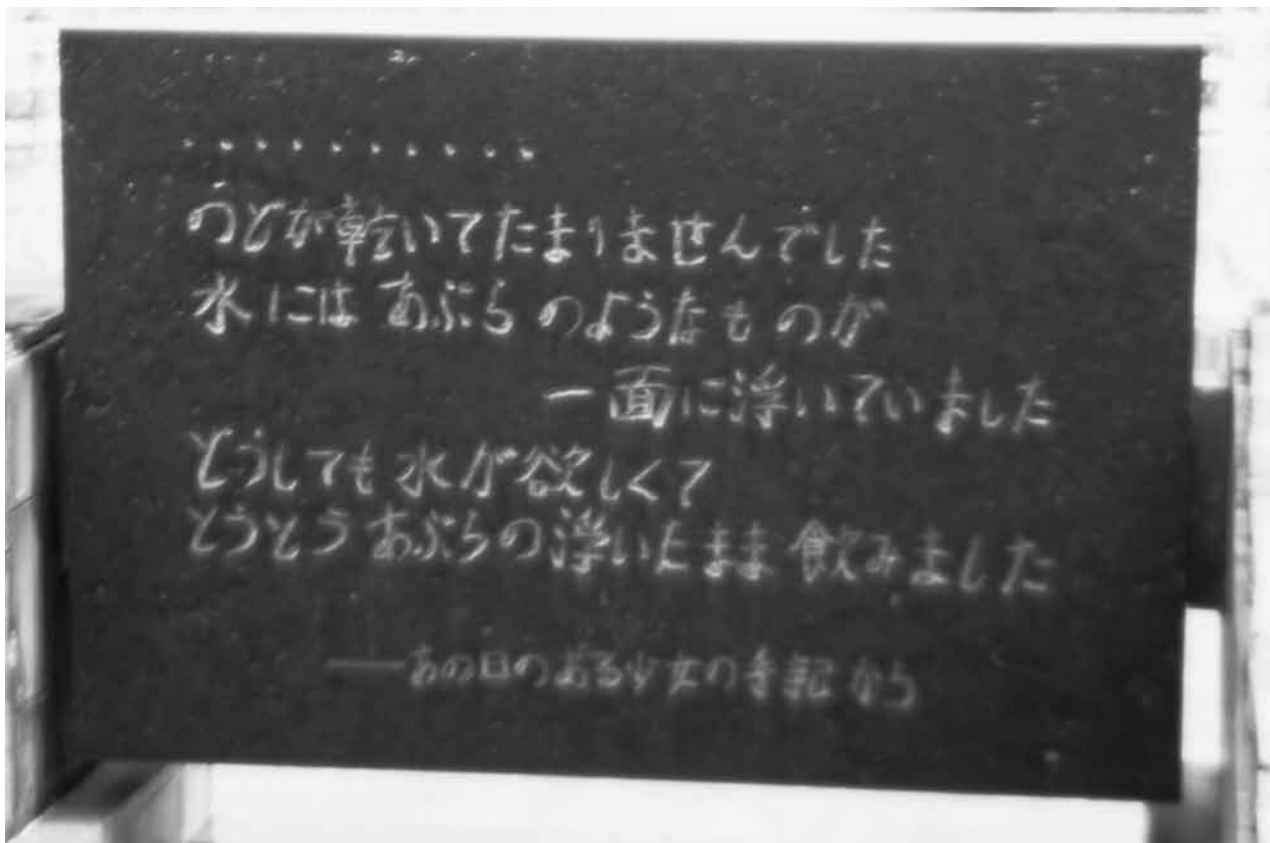 ・・・・・・・・・・・
のどが乾いてたまりませんでした
水にはあぶらのようなものが
一面に浮いていました
どうしても水が欲しくて
とうとうあぶらの浮いたまま飲みました
――あの日のある少女の手記から